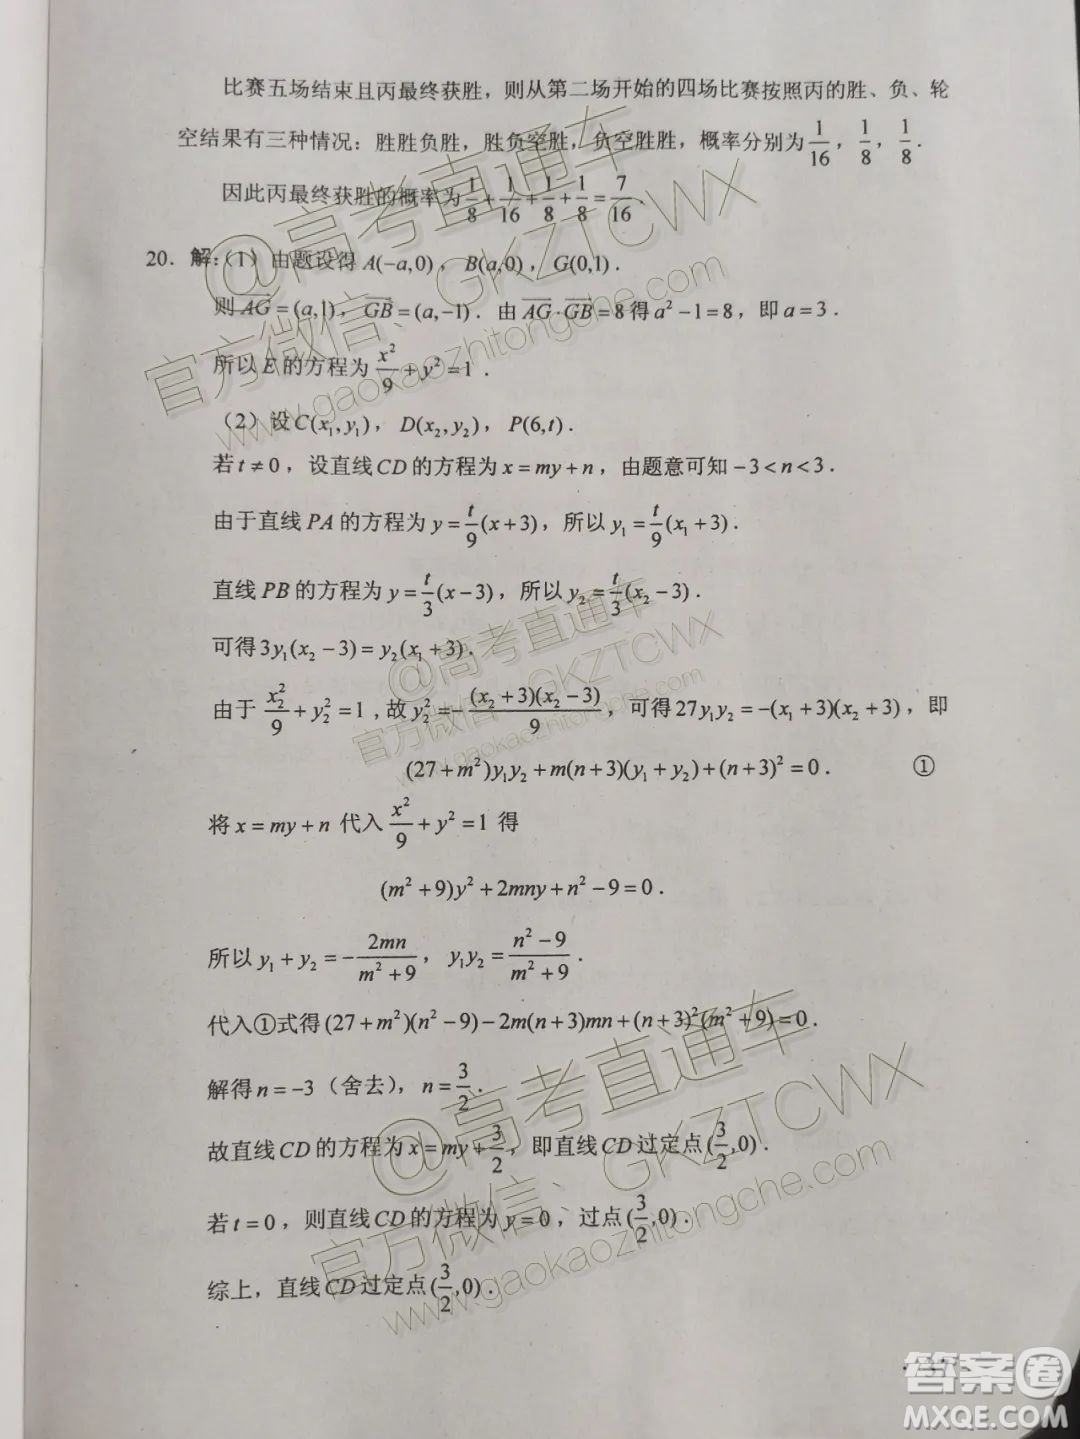 比赛五场结束且丙最终获胜，则从第二场开始的四场比赛按照丙的胜、负、轮
空结果有三种情况：胜胜负胜，胜负空胜，负空胜胜，概率分别为 1/16，1/8，1/8．
因此丙最终获胜的概率为 1/8+1/16+1/8+1/8=7/16．
20．解：（1）由题设得 A(−a,0)，B(a,0)，G(0,1)．
则 \overrightarrow{AG}=(a,1)，\overrightarrow{GB}=(a,−1)．由 \overrightarrow{AG}·\overrightarrow{GB}=8得 a²−1=8，即 a=3．
所以 E 的方程为 x²/9+y²=1．
（2）设 C(x₁,y₁)，D(x₂,y₂)，P(6,t)．
若 t≠0，设直线 CD 的方程为 x=my+n，由题意可知 −3<n<3．
由于直线 PA 的方程为 y=t/9(x+3)，所以 y₁=t/9(x₁+3)．
直线 PB 的方程为 y=t/3(x−3)，所以 y₂=t/3(x₂−3)．
可得 3y₁(x₂−3)=y₂(x₁+3)．
由于 x₂²/9+y₂²=1，故 y₂²=−(x₂+3)(x₂−3)/9，可得 27y₁y₂=−(x₁+3)(x₂+3)，即
(27+m²)y₁y₂+m(n+3)(y₁+y₂)+(n+3)²=0． ①
将 x=my+n 代入 x²/9+y²=1 得
(m²+9)y²+2mny+n²−9=0．
所以 y₁+y₂=−2mn/(m²+9)，y₁y₂=(n²−9)/(m²+9)．
代入①式得 (27+m²)(n²−9)−2m(n+3)mn+(n+3)²(m²+9)=0．
解得 n=−3（舍去），n=3/2．
故直线 CD 的方程为 x=my+3/2，即直线 CD 过定点 (3/2,0)．
若 t=0，则直线 CD 的方程为 y=0，过点 (3/2,0)．
综上，直线 CD 过定点 (3/2,0)．
@高考直通车
官方微信：GKZTCWX
www.gaokaozhitongche.com
@高考直通车
官方微信：GKZTCWX
www.gaokaozhitongche.com
@高考直通车
官方微信：GKZTCWX
www.gaokaozhitongche.com
答案卷
MXQE.COM